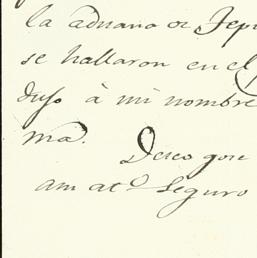 la aduana de Tepi
se hallaron en el
dujo à mi nombre
ma.
Deseo goze
am at.º Seguro